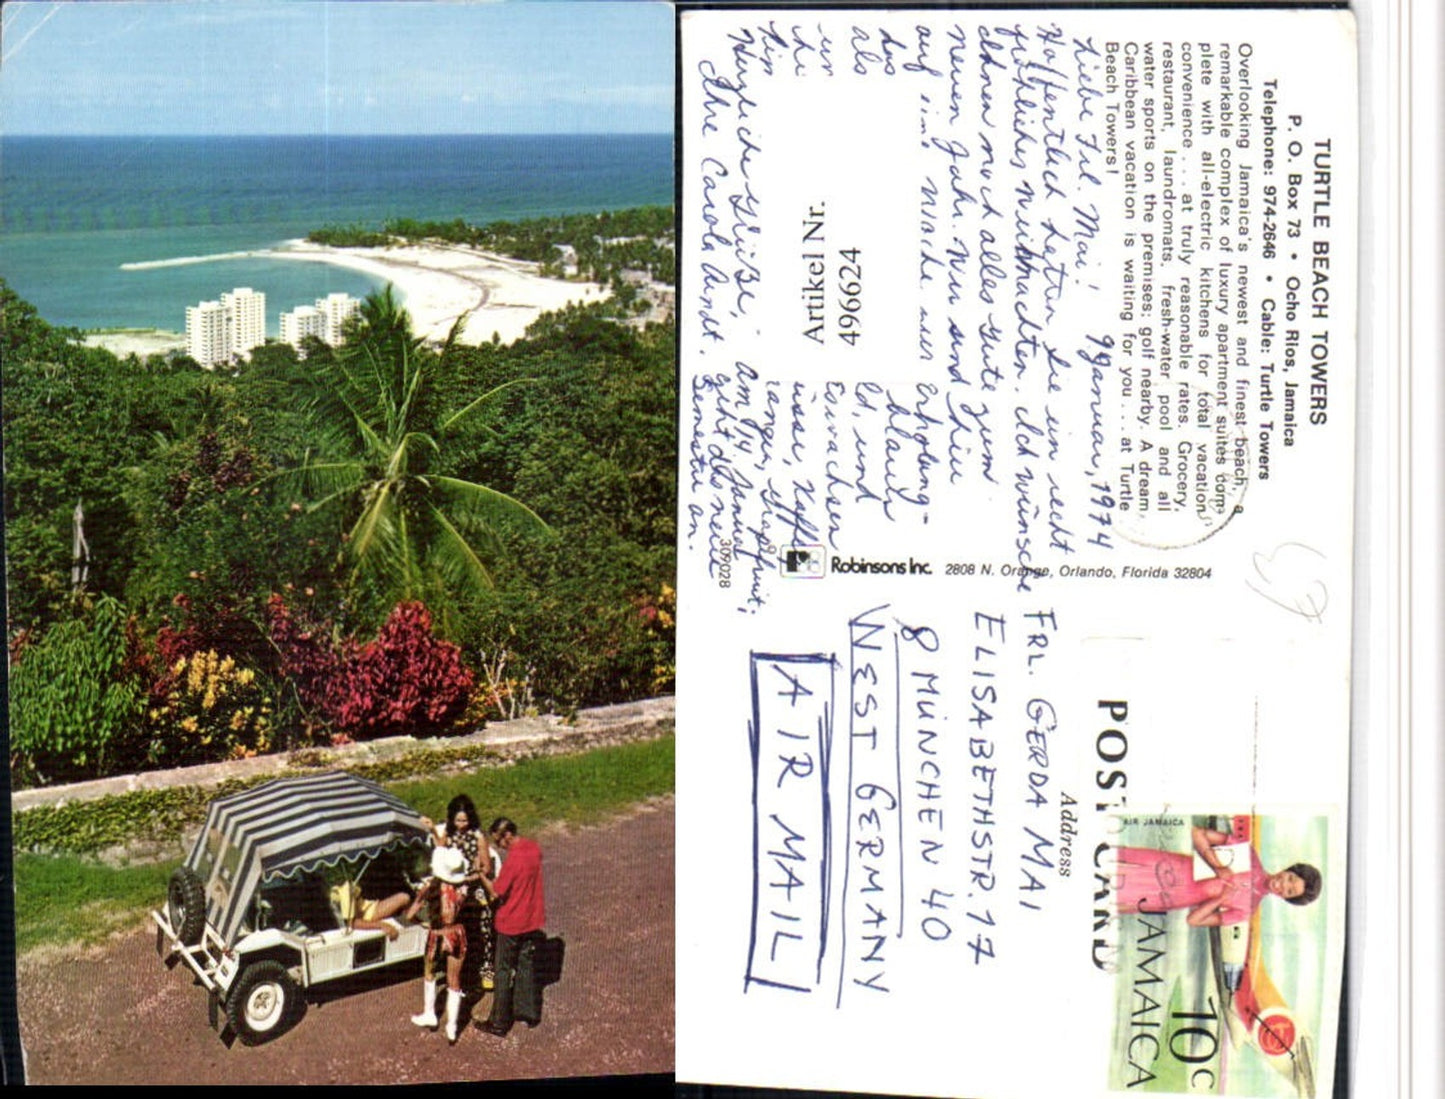 TURTLE BEACH TOWERS
P. O. Box 73 • Ocho Rios, Jamaica
Telephone: 974-2646 • Cable: Turtle Towers
Overlooking Jamaica's newest and finest beach, a
remarkable complex of luxury apartment suites com-
plete with all-electric kitchens for total vacation
convenience . . . at truly reasonable rates. Grocery,
restaurant, laundromats, fresh-water pool and all
water sports on the premises; golf nearby. A dream
Caribbean vacation is waiting for you . . . at Turtle
Beach Towers!
9. Januar, 1974
Liebe Frl. Mai!
Hoffentlich hatten Sie ein recht
fröhliches Weihnachten. Ich wünsche
Ihnen noch alles Gute zum
neuen Jahr. Wir sind hier
auf eine Woche
Erholung-
Das blaue
als und
Erwachsen
Herzliche Grüße,
Ihre Carola Arndt.
Am 14. Januar
geht das neue
Semester an.
Artikel Nr.
496624
309028
Robinsons Inc. 2808 N. Orange, Orlando, Florida 32804
POST CARD
Address
FRL. GERDA MAI
ELISABETHSTR. 17
8 MÜNCHEN 40
WEST GERMANY
AIR MAIL
AIR JAMAICA
JAMAICA
10c